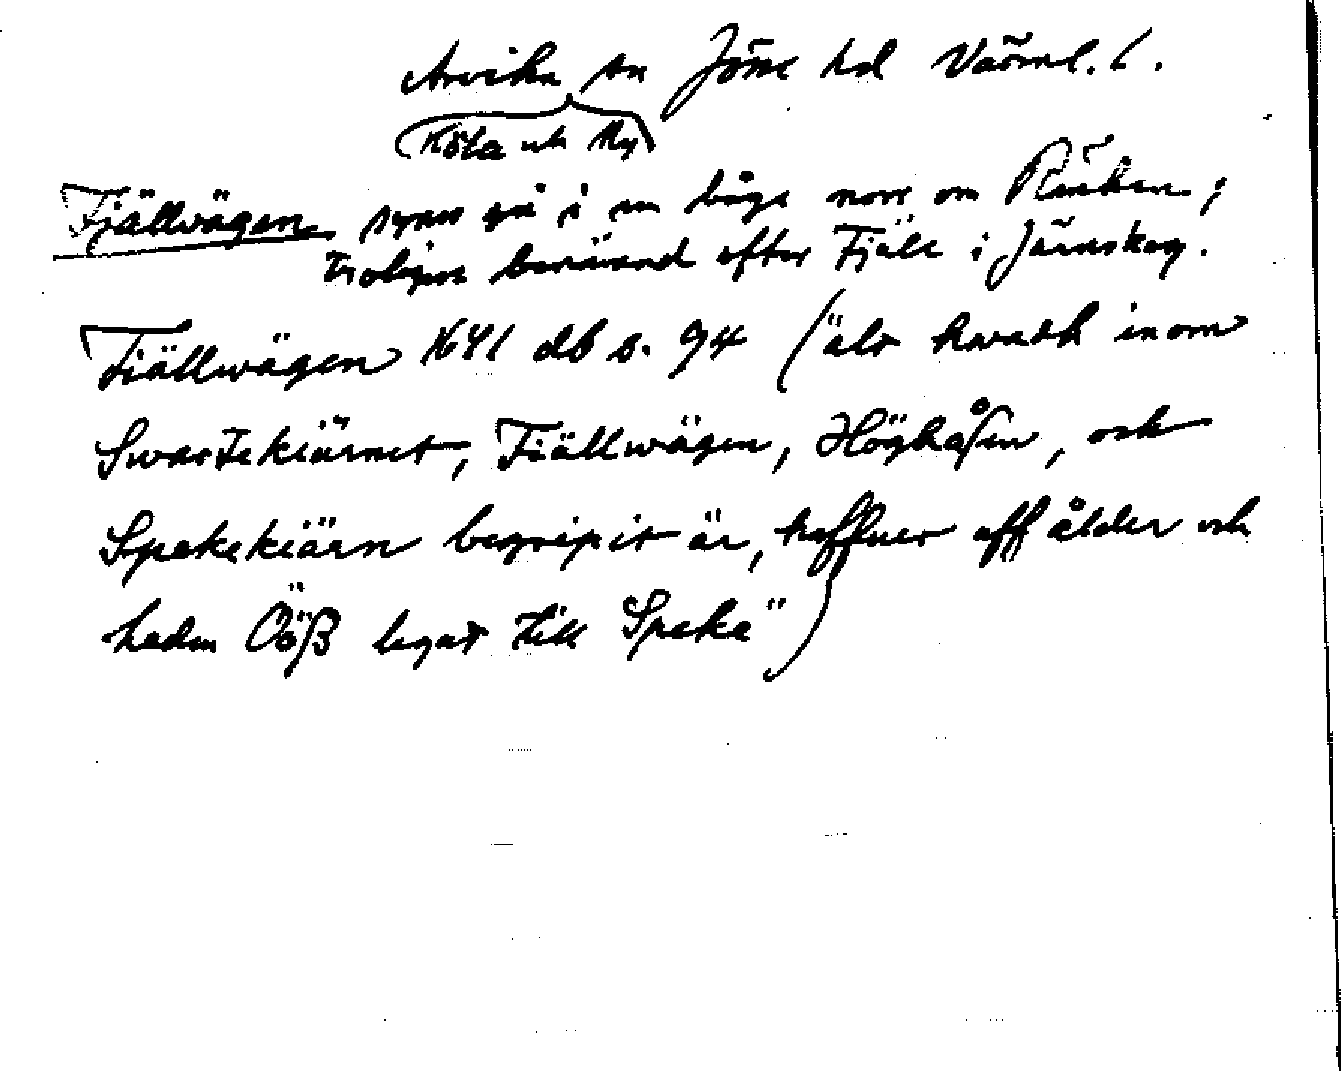 Arvika sn Jösse hd Värml. l.
(Köla och Ny)
Fjällvägen synes gå i en båge norr om Räken,
troligen benämnd efter Fjäll i Järnskog.
Fiällwägen 1641 db s. 94 (”alt hwadh inom
Swartekiärnet, Fiällwägen, Höghåsen, och
Spekekiärn begripit är, haffuer aff ålder och
heden Ööß legat till Speke”)